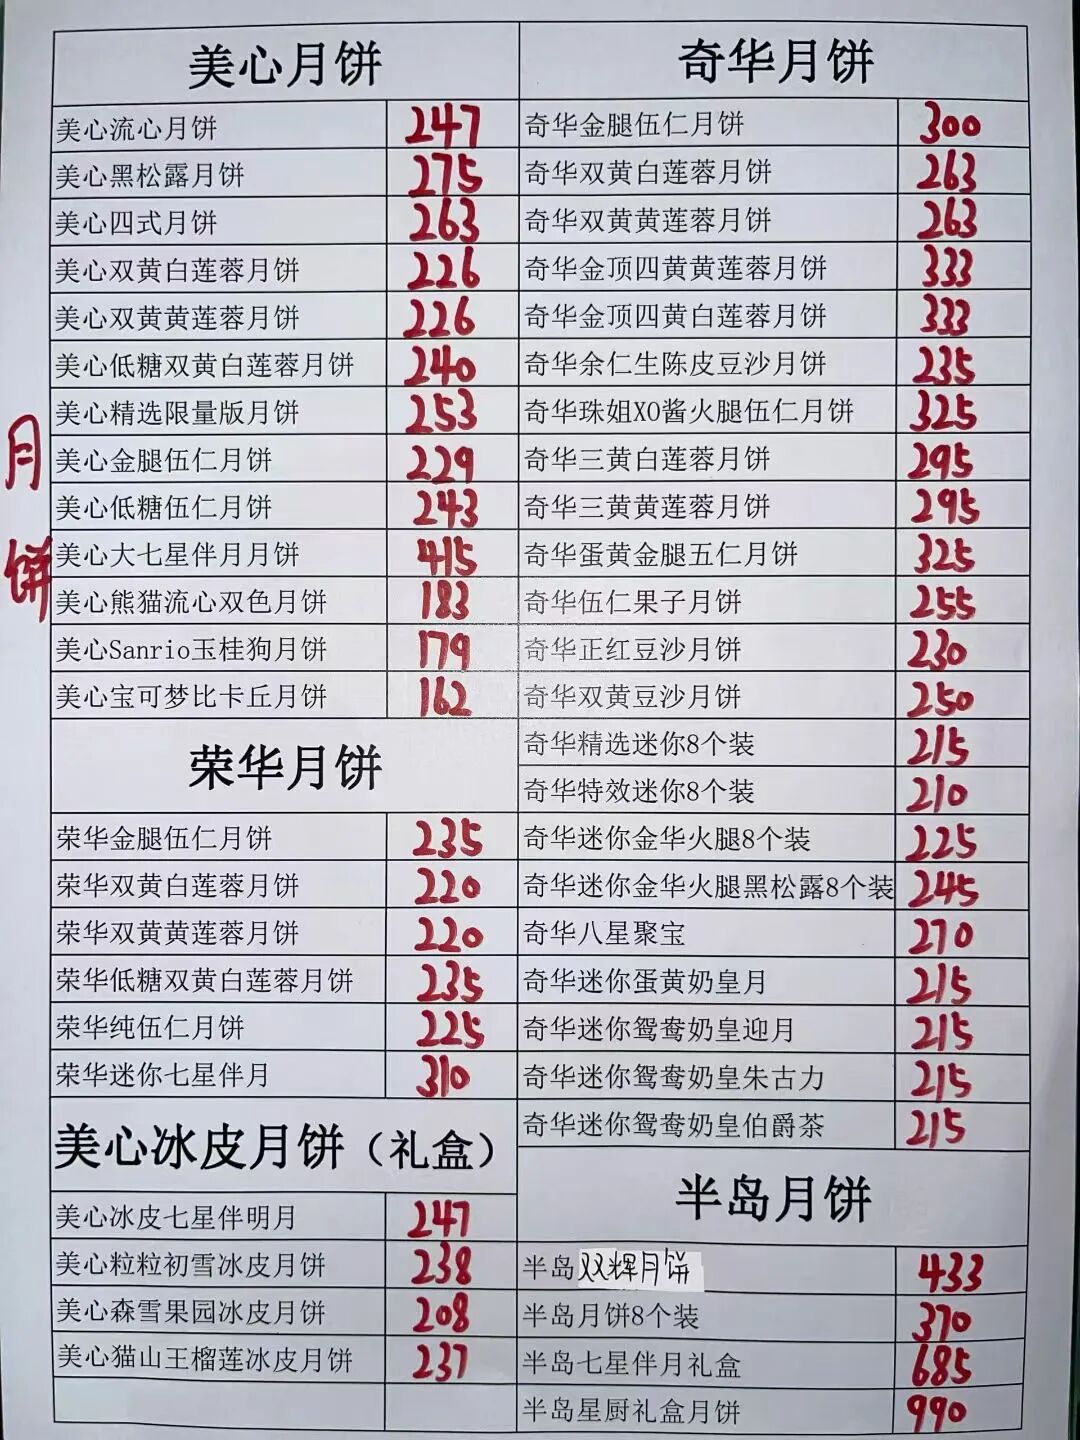 月饼
美心月饼
美心流心月饼 247
美心黑松露月饼 275
美心四式月饼 263
美心双黄白莲蓉月饼 226
美心双黄黄莲蓉月饼 226
美心低糖双黄白莲蓉月饼 240
美心精选限量版月饼 253
美心金腿伍仁月饼 229
美心低糖伍仁月饼 243
美心大七星伴月月饼 415
美心熊猫流心双色月饼 183
美心Sanrio玉桂狗月饼 179
美心宝可梦比卡丘月饼 162
荣华月饼
荣华金腿伍仁月饼 235
荣华双黄白莲蓉月饼 220
荣华双黄黄莲蓉月饼 220
荣华低糖双黄白莲蓉月饼 235
荣华纯伍仁月饼 225
荣华迷你七星伴月 310
美心冰皮月饼（礼盒）
美心冰皮七星伴明月 247
美心粒粒初雪冰皮月饼 238
美心森雪果园冰皮月饼 208
美心猫山王榴莲冰皮月饼 237
奇华月饼
奇华金腿伍仁月饼 300
奇华双黄白莲蓉月饼 263
奇华双黄黄莲蓉月饼 263
奇华金顶四黄黄莲蓉月饼 333
奇华金顶四黄白莲蓉月饼 333
奇华余仁生陈皮豆沙月饼 235
奇华珠姐XO酱火腿伍仁月饼 325
奇华三黄白莲蓉月饼 295
奇华三黄黄莲蓉月饼 295
奇华蛋黄金腿五仁月饼 325
奇华伍仁果子月饼 255
奇华正红豆沙月饼 230
奇华双黄豆沙月饼 250
奇华精选迷你8个装 215
奇华特效迷你8个装 210
奇华迷你金华火腿8个装 225
奇华迷你金华火腿黑松露8个装 245
奇华八星聚宝 270
奇华迷你蛋黄奶皇月 215
奇华迷你鸳鸯奶皇迎月 215
奇华迷你鸳鸯奶皇朱古力 215
奇华迷你鸳鸯奶皇伯爵茶 215
半岛月饼
半岛双辉月饼 433
半岛月饼8个装 370
半岛七星伴月礼盒 685
半岛星厨礼盒月饼 990